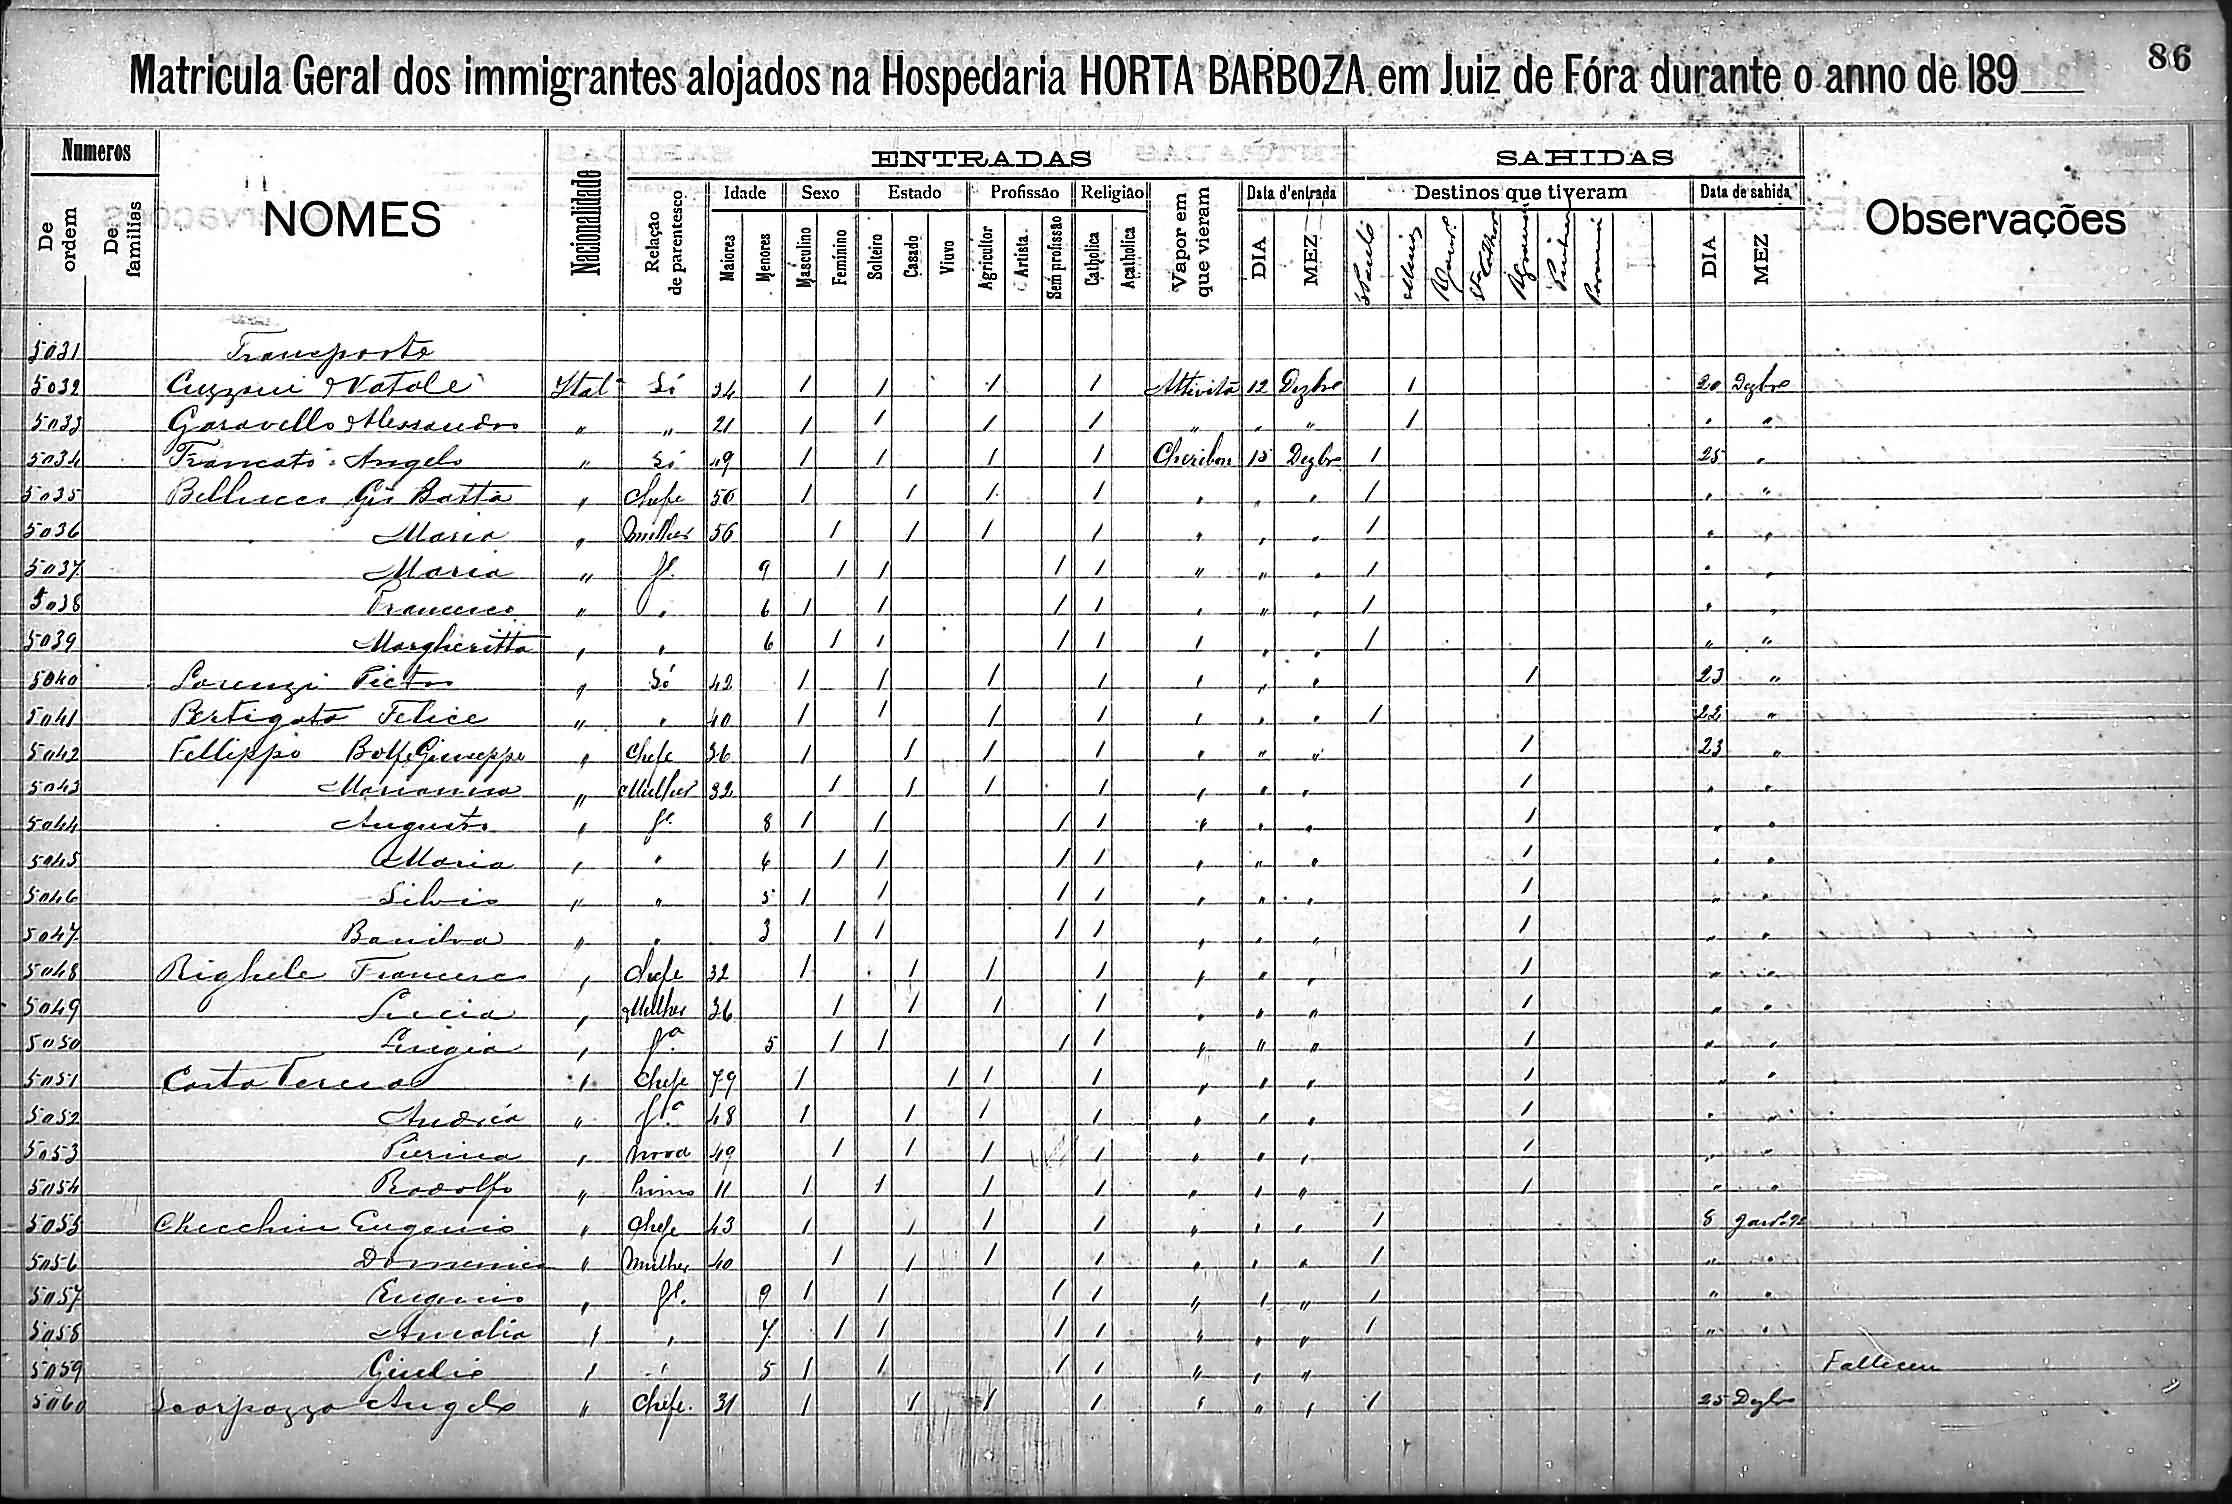 86
Matricula Geral dos immigrantes alojados na Hospedaria HORTA BARBOZA em Juiz de Fóra durante o anno de 189
Numeros ENTRADAS SAHIDAS
De ordem De familias NOMES Nacionalidade Relação de parentesco Idade Sexo Estado Profissão Religião Vapor em que vieram Data d'entrada Destinos que tiveram Data de sahida Observações
Maiores Menores Masculino Feminino Solteiro Casado Viuvo Agricultor Artista Sem profissão Catholica Acatholica DIA MEZ S Paulo Minas DIA MEZ
5031 Transporte
5032 Natale Ital Só 34 1 1 1 1 Attivitá 12 Dezbro 1 20 Dezbro
5033 Garavello Alessandro " " 21 1 1 1 1 " " " 1 " "
5034 Angelo " Só 19 1 1 1 1 Cheribon 15 Dezbro 1 25 "
5035 Bellucco Gio Batta " Chefe 50 1 1 1 1 " " " 1 " "
5036 Maria " Mulher 56 1 1 1 1 " " " 1 " "
5037 Maria " fl. 9 1 1 1 1 " " " 1 " "
5038 Francesco " " 6 1 1 1 1 " " " 1 " "
5039 Margheritta " " 6 1 1 1 1 " " " 1 " "
5040 Lorenzi Pietro " Só 42 1 1 1 1 " " " 1 23 "
5041 Bertigato Felice " " 40 1 1 1 1 " " " 1 22 "
5042 Fellippo Giuseppe " Chefe 36 1 1 1 1 " " " 1 23 "
5043 Marianna " Mulher 32 1 1 1 1 " " " 1 " "
5044 Augusto " fl. 8 1 1 1 1 " " " 1 " "
5045 Maria " " 6 1 1 1 1 " " " 1 " "
5046 Silvio " " 5 1 1 1 1 " " " 1 " "
5047 " " 3 1 1 1 1 " " " 1 " "
5048 Righele Francesco " Chefe 32 1 1 1 1 " " " 1 " "
5049 Lucia " Mulher 36 1 1 1 1 " " " 1 " "
5050 Luigia " fª 5 1 1 1 1 " " " 1 " "
5051 Costa Teresa " Chefe 79 1 1 1 1 " " " 1 " "
5052 Andréa " fª 48 1 1 1 1 " " " 1 " "
5053 Pierina " Nora 49 1 1 1 1 " " " 1 " "
5054 Rodolfo " Primo 11 1 1 1 1 " " " 1 " "
5055 Checchin Eugenio " Chefe 43 1 1 1 1 " " " 1 8
5056 Domenica " Mulher 40 1 1 1 1 " " " 1 " "
5057 Eugenio " fl. 9 1 1 1 1 " " " 1 " "
5058 Amalia " " 7 1 1 1 1 " " " 1 " "
5059 Giulio " " 5 1 1 1 1 " " " Falleceu
5060 Scarpazza Angelo " Chefe. 31 1 1 1 1 " " " 1 25 Dezbro